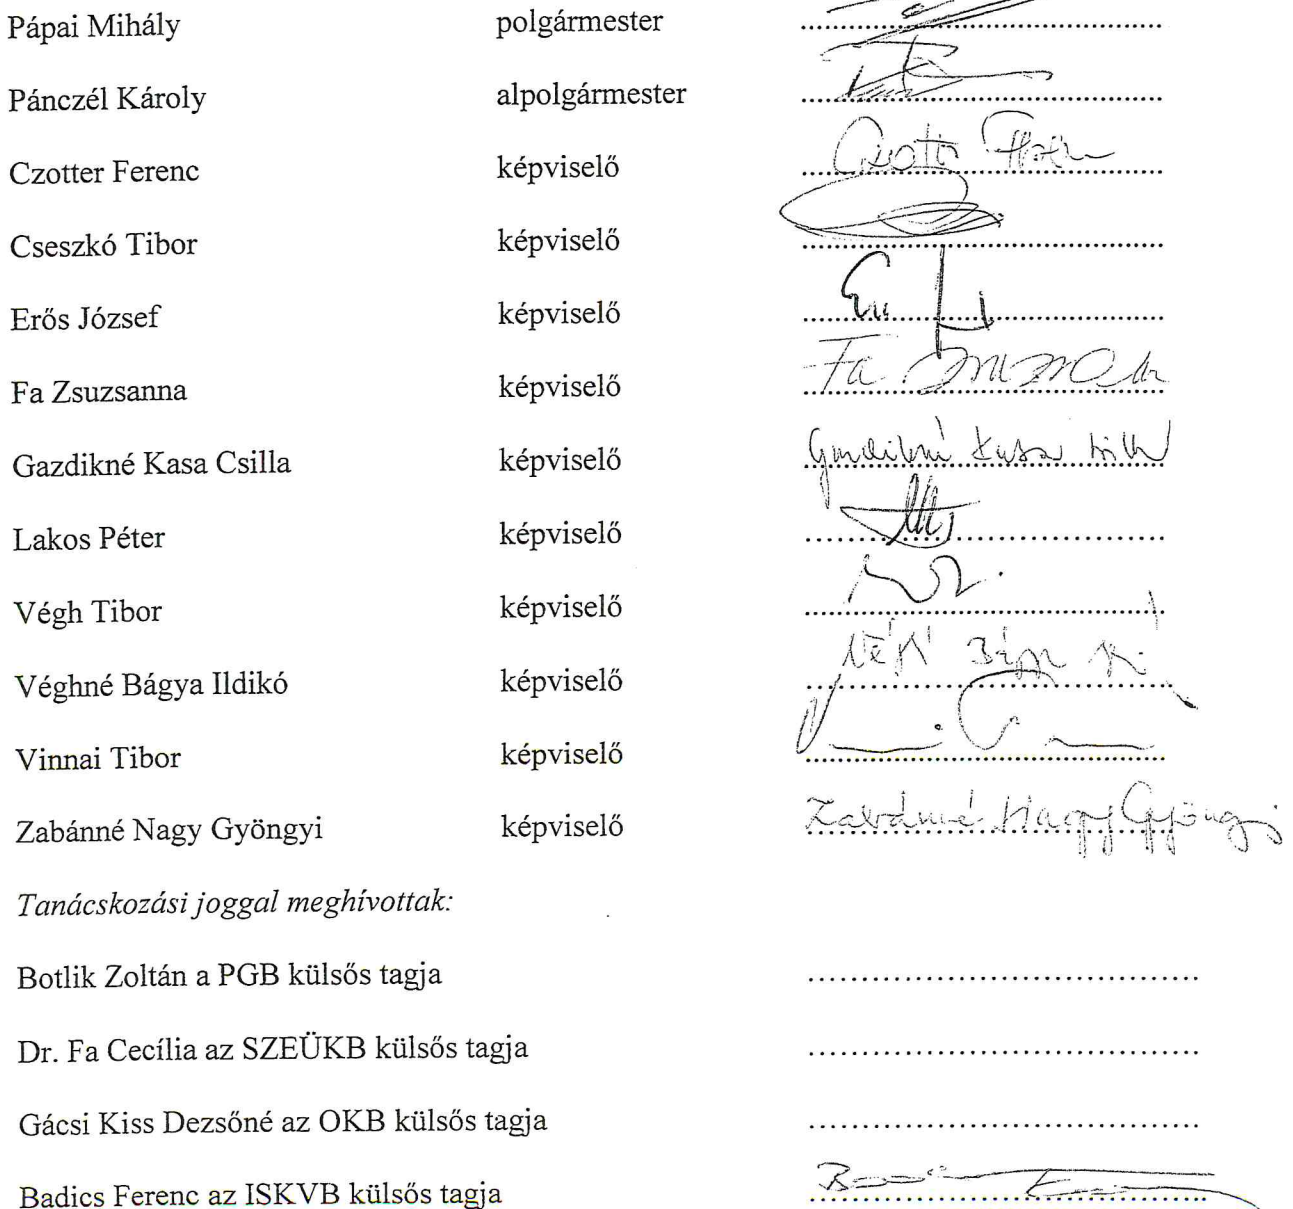 Pápai Mihály polgármester
Pánczél Károly alpolgármester
Czotter Ferenc képviselő
Cseszkó Tibor képviselő
Erős József képviselő
Fa Zsuzsanna képviselő Fa
Gazdikné Kasa Csilla képviselő Gazdikné Kasa Csilla
Lakos Péter képviselő
Végh Tibor képviselő
Véghné Bágya Ildikó képviselő
Vinnai Tibor képviselő
Zabánné Nagy Gyöngyi képviselő Zabánné Nagy Gyöngyi
Tanácskozási joggal meghívottak:
Botlik Zoltán a PGB külsős tagja
Dr. Fa Cecília az SZEÜKB külsős tagja
Gácsi Kiss Dezsőné az OKB külsős tagja
Badics Ferenc az ISKVB külsős tagja